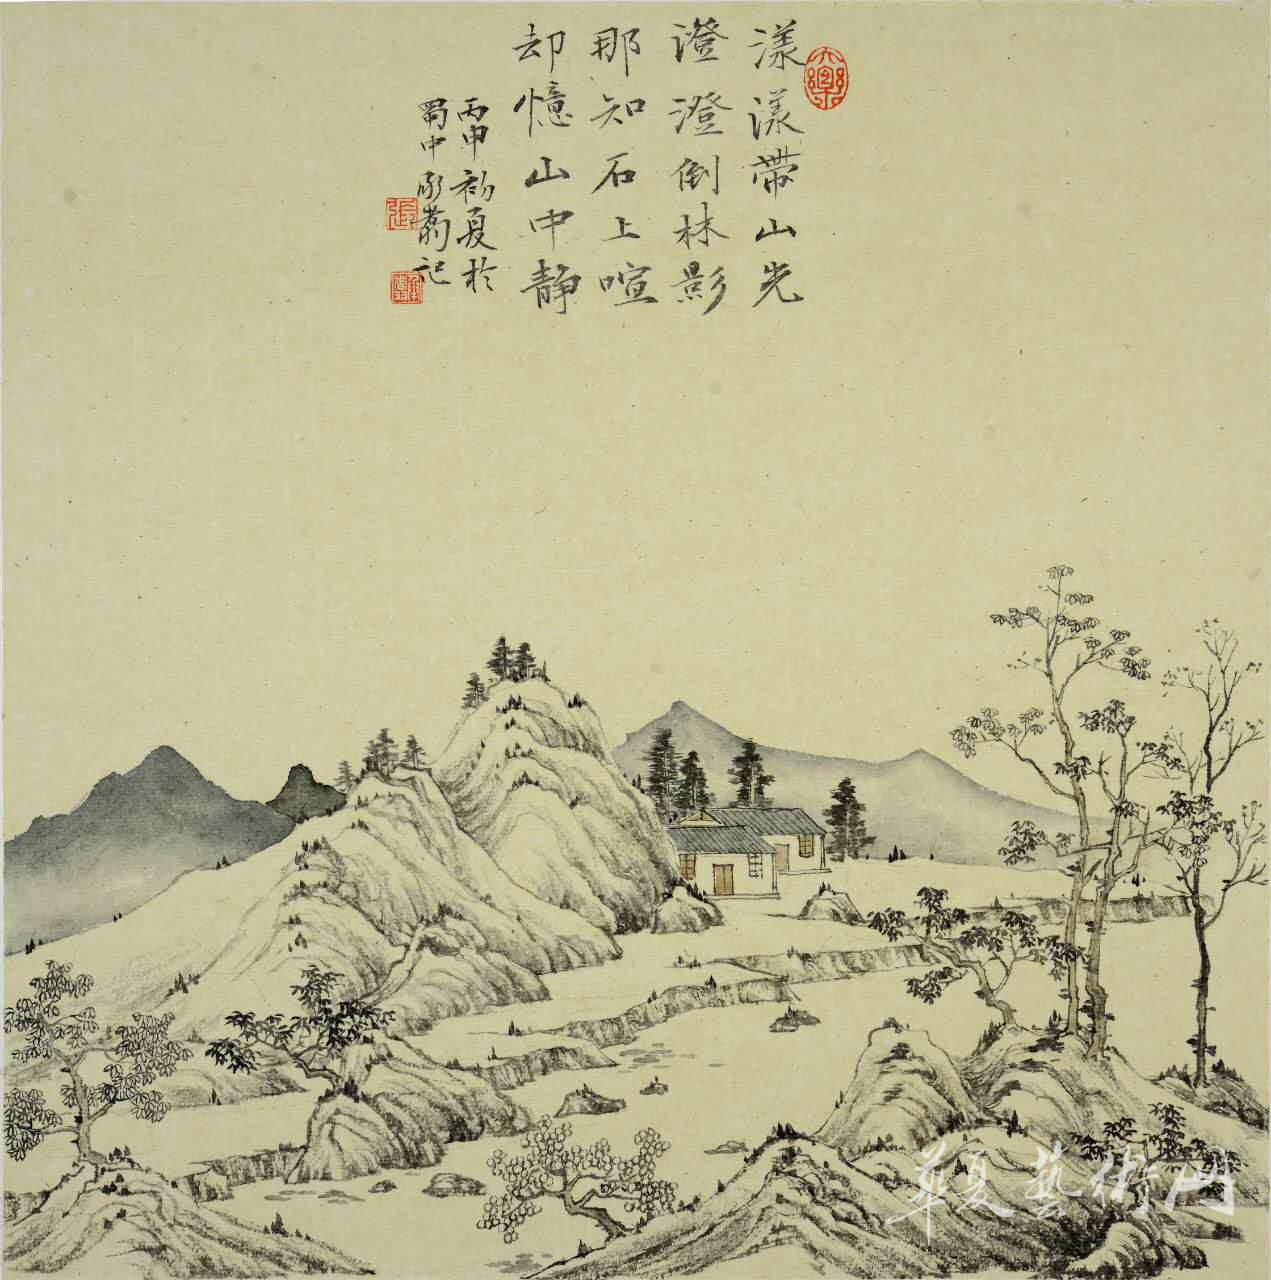 漾漾帶山光
澄澄倒林影
那知石上喧
却憶山中静
丙申初夏於
蜀中承蕭記
華夏藝術网